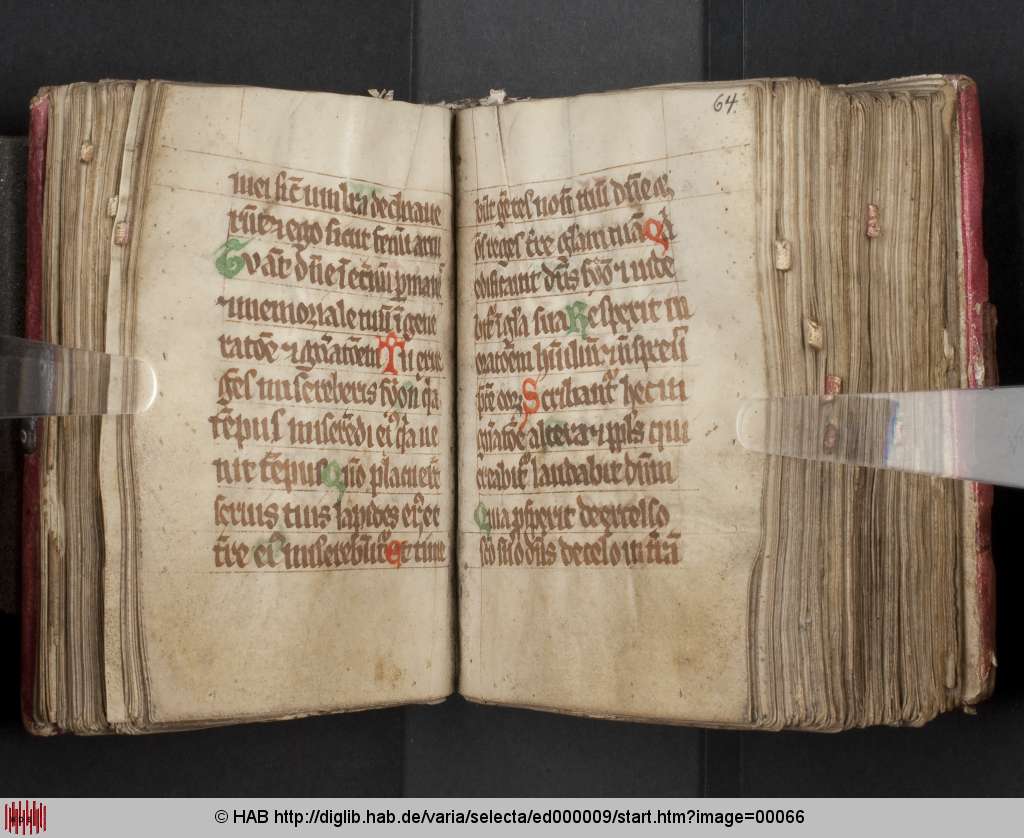 mei sic̄ umbra declinaue
rūt ⁊ ego sicut fenū arui
Tv aūt dn̄e ī et̄nū ꝑmanes
⁊ memoriale tuū ī gene
ratōe ⁊ gn̄atōem Tu exur
gēs misereberis syon q̇a
tēpus miserēdi ei⁹ q̇a ue
nit tēpus Qm̄o placuer̄t
seruis tuis lapides ei⁹ et
t̄re ei⁹ misereb̄ūt᷑ Et time
64.
būt gētes nom̄ tuū dn̄e ⁊ o
m̄s reges t̄re gl̄am tuā Q̇a
edificauit dn̄s syō ⁊ uide
bit᷑ ī gl̄a sua Respexit in
oratōem hūiliū ⁊ n̄ spreuit
p̄cē eoꝝ Scribant᷑ hec in
gn̄atōe altera ⁊ ppl̄s qui
creabit᷑ laudabit dn̄m
Quia ꝓspexit de excelso
sc̄o suo dn̄s de celo in t̄rā
© HAB http://diglib.hab.de/varia/selecta/ed000009/start.htm?image=00066